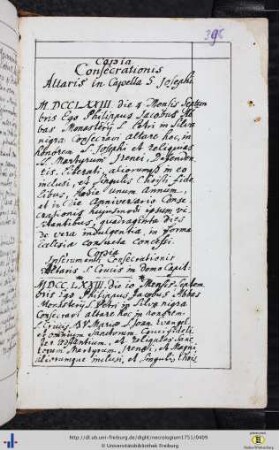 396
Copia
Consecrationis
Altaris in Capella S. Josephi
MDCCLXXIII die 4 Mensis Septem
bris Ego Philippus Jacobus Ab
bas Monasterij S. Petri in Silva
nigra Consecravi altare hoc in
honorem S. Josephi et reliquias
SS. Martyrum Irenei, Defenden
tis, Liberati, aliorumque in eo
inclusi, et singulis Christi fide
libus, hodie unum Annum,
et in die Anniversario Conse
crationis huiusmodi ipsum vi
sitantibus, quadraginta dies
de vera indulgentia, in forma
Ecclesiae consueta concessi.
Copia
Instrumenti Consecrationis
Altaris S. Crucis in domo Capit.
MDCCLXXIII, die 10 Mensis Septem
bris Ego Philippus Jacobus Abbas
Monasterij S. Petri in Silva nigra
Consecravi altare hoc in honorem
S. Crucis, B.V. Mariae S. Joan. Evang.
et omnium Sanctorum
et reliquias sanc
torum Martyrum Irenei, et Magni
aliorumque inclusi, et singulis Chris
http://dl.ub.uni-freiburg.de/diglit/necrologium1751/0409
© Universitätsbibliothek Freiburg